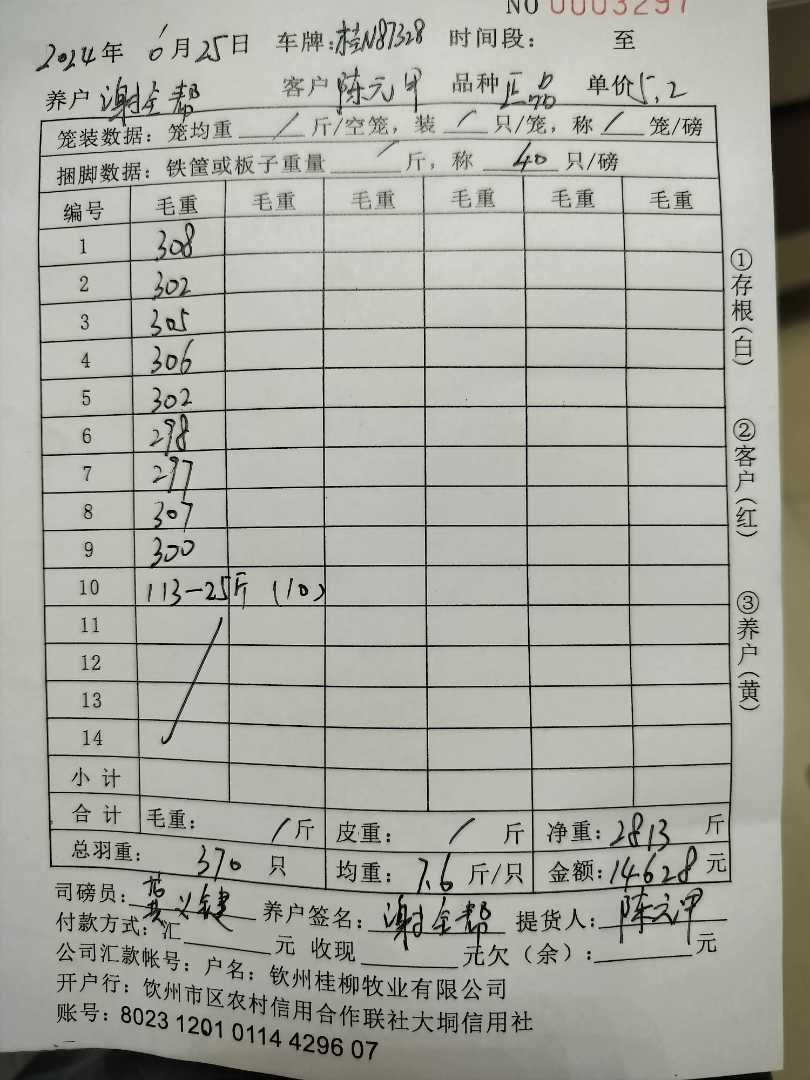 NO 0003297
2024年 6月25日 车牌:桂N87328 时间段: 至
养户 谢全帮 客户 陈元甲 品种 正品 单价5.2
笼装数据: 笼均重 / 斤/空笼, 装 / 只/笼, 称 / 笼/磅
捆脚数据: 铁筐或板子重量 / 斤, 称 40 只/磅
编号 毛重 毛重 毛重 毛重 毛重 毛重
1 308
2 302
3 305
4 306
5 302
6 298
7 297
8 307
9 300
10 113-25斤 (10)
11
12
13
14
小 计
合 计 毛重: / 斤 皮重: / 斤 净重: 2813 斤
总羽重: 370 只 均重: 7.6 斤/只 金额: 14628 元
司磅员: 黄义健 养户签名: 谢全帮 提货人: 陈元甲
付款方式: 汇 元 收现 元欠 (余): 元
公司汇款帐号: 户名: 钦州桂柳牧业有限公司
开户行: 钦州市区农村信用合作联社大垌信用社
账号: 8023 1201 0114 4296 07
①存根(白)
②客户(红)
③养户(黄)